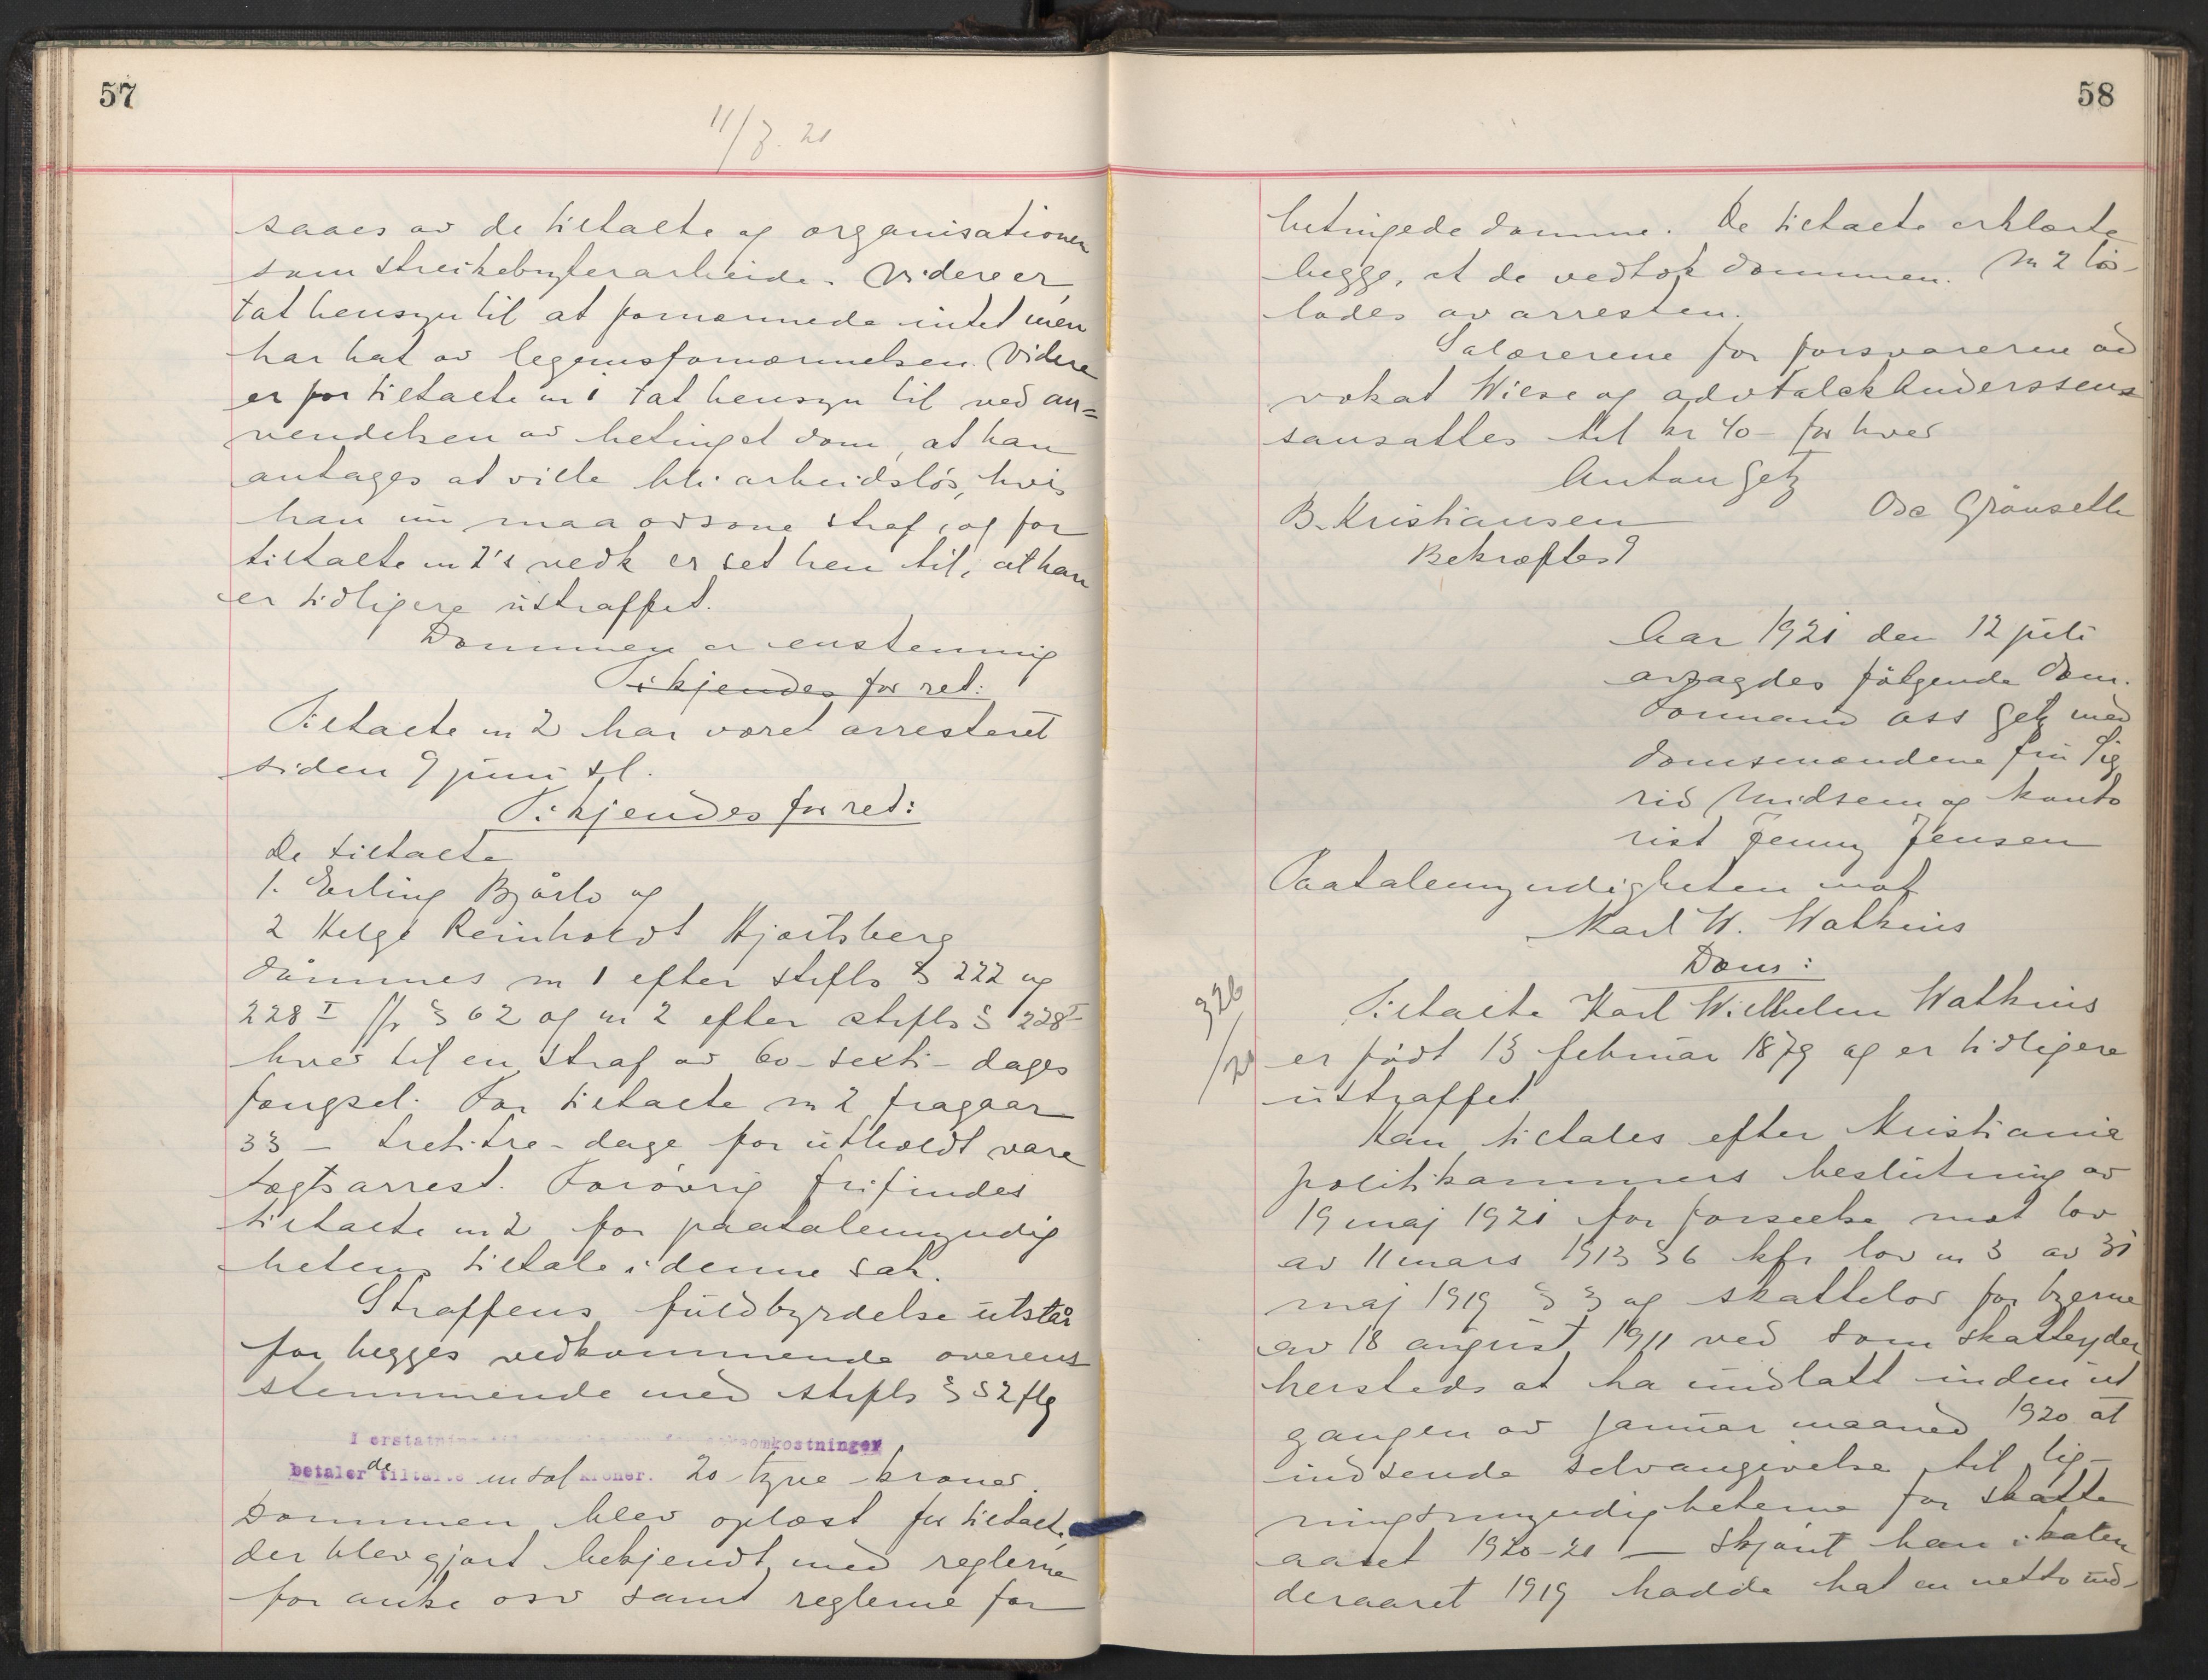 57
11/7. 21
saaes av de tiltalte og organisationen
som streikebryterarbeide. Videre er
tat hensyn til at fornærmede intet mén
har hat av legemsfornærmelsen. Videre
er for tiltalte nr 1 tat hensyn til ved an=
vendelsen av betinget dom, at han
antages at ville bli arbeidsløs, hvis
han nu maa avsone straf, og for
tiltalte nr 2's vedk er set hen til, at han
er tidligere ustraffet.
Dommen er enstemmig
Ti kjendes for ret:
Tiltalte nr 2 har været arresteret
siden 9 juni sl.
Ti kjendes for ret:
De tiltalte
1. Erling Bjørlo og
2 Helge Reinholdt Hjortsberg
dømmes nr 1 efter strfls § 222 og
228 I jfr § 62 og nr 2 efter strfls § 228 I
hver til en straf av 60 - seksti - dages
fængsel. For tiltalte nr 2 fragaar
33 - tretitre - dage for utholdt vare
tægtsarrest. Forøvrig frifindes
tiltalte nr 2 for paatalemyndig
hetens tiltale i denne sak.
Straffens fuldbyrdelse utstår
for begges vedkommende overens
stemmende med strfls § 52 flg
I erstatning til saksomkostninger
betaler de tiltalte kroner. 20 tyve kroner.
Dommen blev oplæst for tiltalte,
der blev gjort bekjendt med reglerne
for anke osv samt reglerne for
58
betingede domme. De tiltalte erklærte
begge, at de vedtok dommen. Nr 2 løs-
lades av arresten.
Salærerne for forsvarerne ad
vokat Wiese og adv Falck Anderssens
sansattes til kr 40 - for hver
Anton Getz
B. Kristiansen Osc Grønseth
Bekræftes
Aar 1921 den 12 juli
avsagdes følgende dom.
Formand ass Getz med
domsmændene fru Sig
rid Midsem og konto
rist Jenny Jensen
Paatalemyndigheten mot
Karl W. Wathnius
Dom:
326
/21
Tiltalte Karl Wilhelm Wathnius
er født 13 februar 1879 og er tidligere
ustraffet
Han tiltales efter Kristiania
politikammers beslutning av
19 maj 1921 for forseelse mot lov
av 11 mars 1913 § 6 kfr lov nr 3 av 31
maj 1919 § 3 og skattelov for byerne
av 18 august 1911 ved som skatteyder
hersteds at ha undlatt inden ut
gangen av januar maaned 1920 at
indsende selvangivelse til lig-
ningsmyndigheterne for skatte
aaret 1920-21 - skjønt han i kalen
deraaret 1919 hadde hat en netto ind-